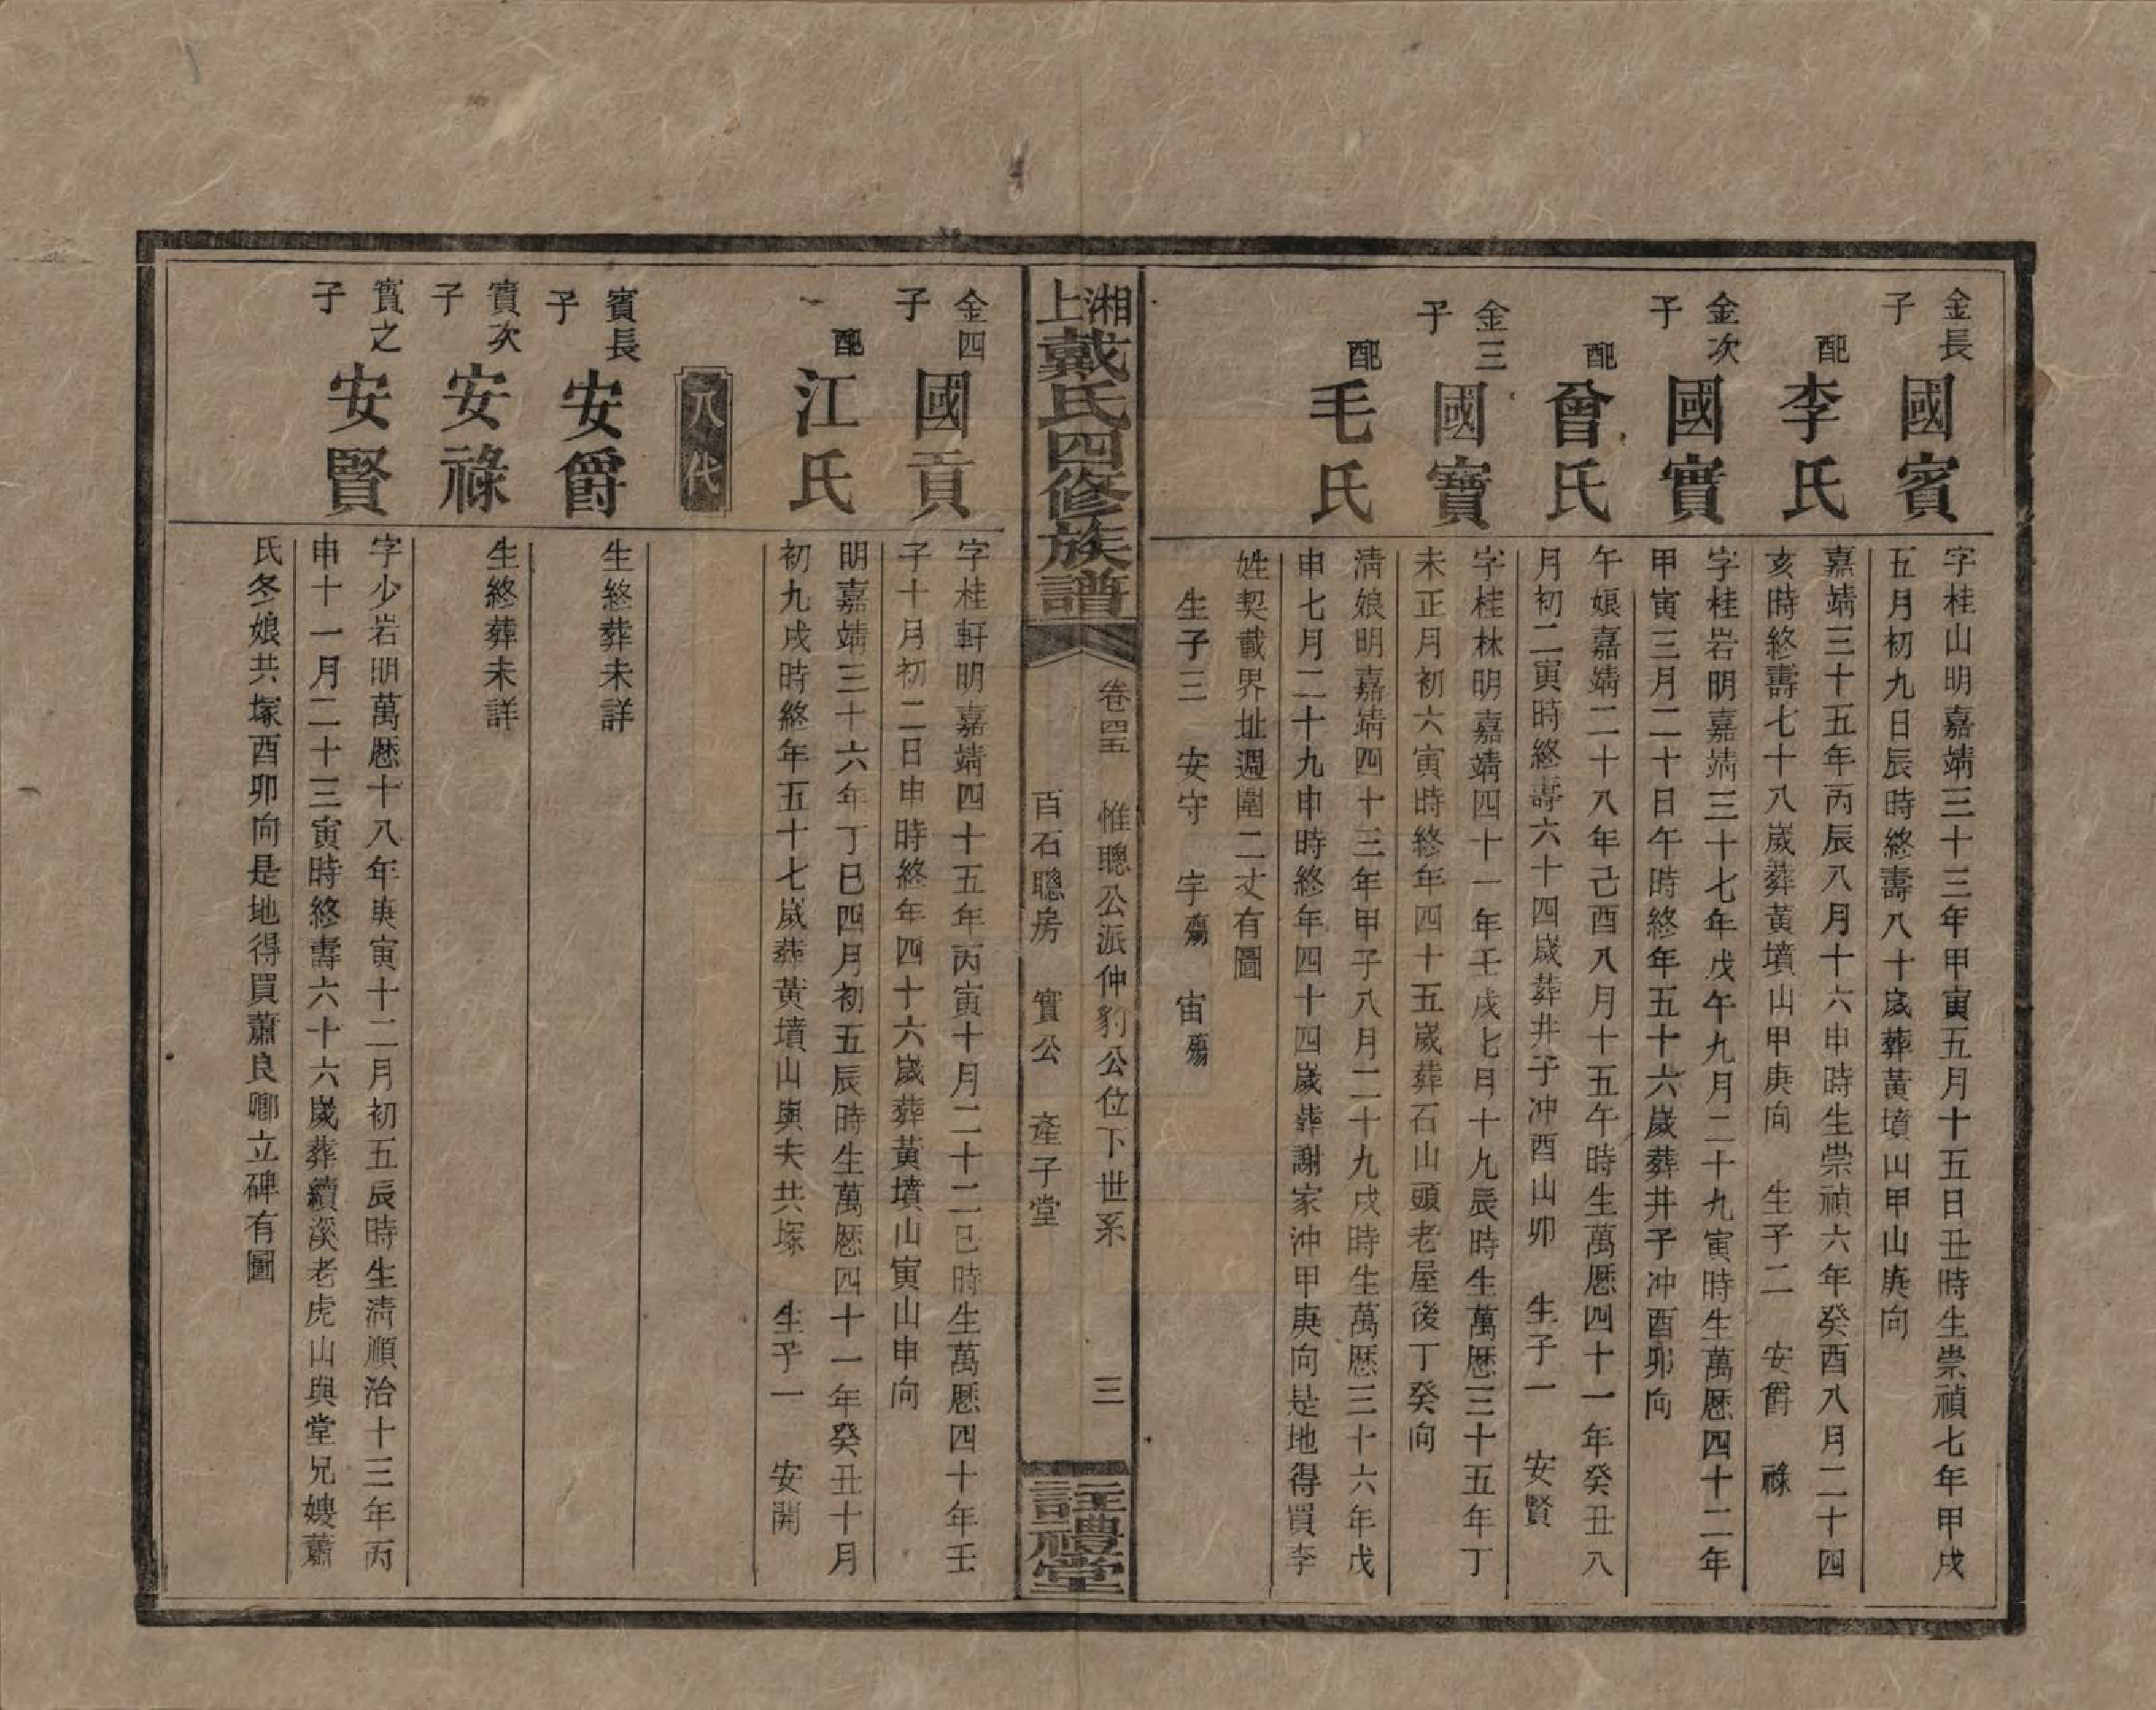 金長子
國賓
字桂山明嘉靖三十三年甲寅五月十五日丑時生崇禎七年甲戌
五月初九日辰時終壽八十歲葬黃墳山甲山庚向
配
李氏
嘉靖三十五年丙辰八月十六申時生崇禎六年癸酉八月二十四
亥時終壽七十八歲葬黃墳山甲庚向 生子二 安爵 祿
金次子
國實
字桂岩明嘉靖三十七年戊午九月二十九寅時生萬歷四十二年
甲寅三月二十日午時終年五十六歲葬井子冲酉卯向
配
曾氏
午娘嘉靖二十八年己酉八月十五午時生萬歷四十一年癸丑八
月初二寅時終壽六十四歲葬井子冲酉山卯 生子一 安賢
金三子
國寶
字桂林明嘉靖四十一年壬戌七月十九辰時生萬歷三十五年丁
未正月初六寅時終年四十五歲葬石山頭老屋後丁癸向
配
毛氏
清娘明嘉靖四十三年甲子八月二十九戌時生萬歷三十六年戊
申七月二十九申時終年四十四歲葬謝家沖甲庚向是地得買李
姓契載界址週圍二丈有圖
生子三 安守 字殤 宙殤
湘上戴氏四修族譜
卷四五 惟聰公派仲豹公位下世系 三
百石聰房 實公 產子堂
註禮堂
金四子
國貢
字桂軒明嘉靖四十五年丙寅十月二十二巳時生萬歷四十年壬
子十月初二日申時終年四十六歲葬黃墳山寅山申向
配
江氏
明嘉靖三十六年丁巳四月初五辰時生萬歷四十一年癸丑十月
初九戌時終年五十七歲葬黃墳山與夫共塚 生子一 安開
八代
賓長子
安爵
生終葬未詳
賓次子
安祿
生終葬未詳
實之子
安賢
字少岩明萬歷十八年庚寅十二月初五辰時生清順治十三年丙
申十一月二十三寅時終壽六十六歲葬續溪老虎山與堂兄嫂蕭
氏冬娘共塚酉卯向是地得買蕭良卿立碑有圖